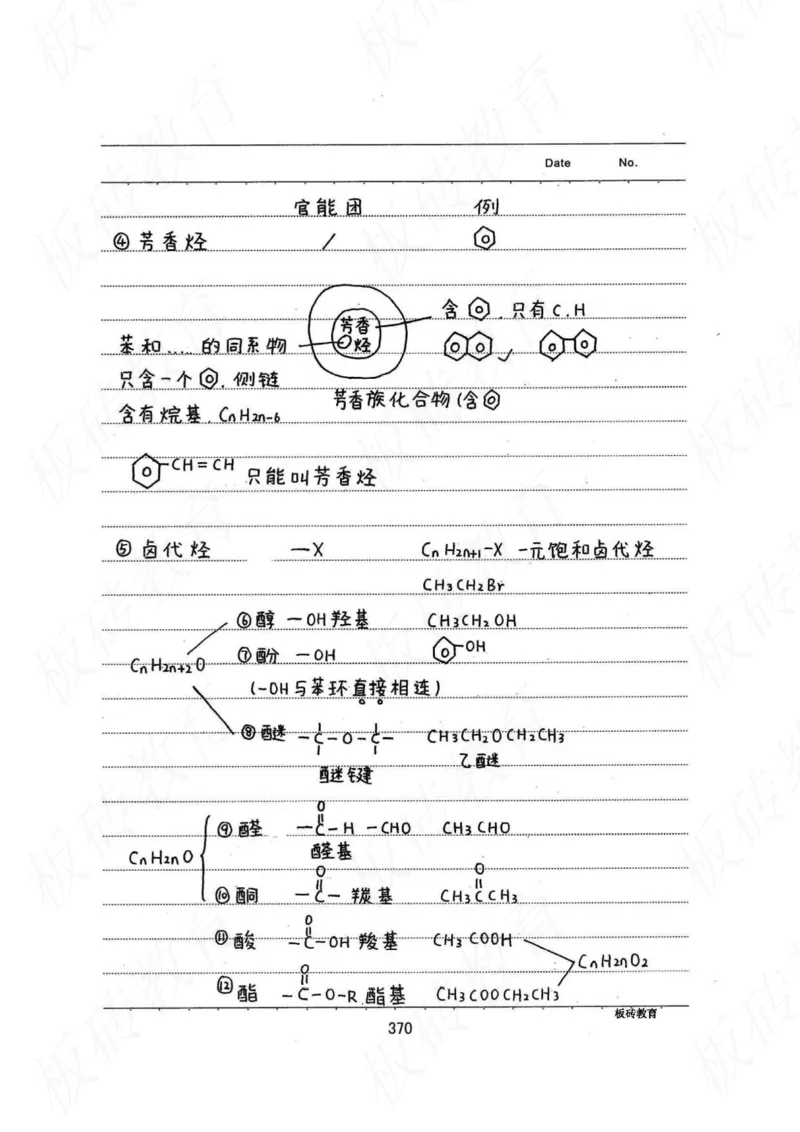 Date No.
官能团 例
④ 芳香烃 /
含 , 只有 C.H
芳香
烃
苯和……的同系物
只含一个 , 侧链
芳香族化合物(含
含有烷基. CnH2n-6
CH=CH 只能叫芳香烃
⑤ 卤代烃 —X CnH2n+1-X 一元饱和卤代烃
CH3CH2Br
⑥醇 —OH羟基 CH3CH2OH
CnH2n+2O
⑦酚 —OH OH
(-OH与苯环直接相连)
⑧醚 -C-O-C- CH3CH2OCH2CH3
醚键 乙醚
O
⑨醛 -C-H -CHO CH3CHO
CnH2nO
醛基
O O
⑩酮 -C- 羰基 CH3CCH3
O
⑪酸 -C-OH 羧基 CH3COOH
CnH2nO2
O
⑫酯 -C-O-R 酯基 CH3COOCH2CH3
板砖教育
370